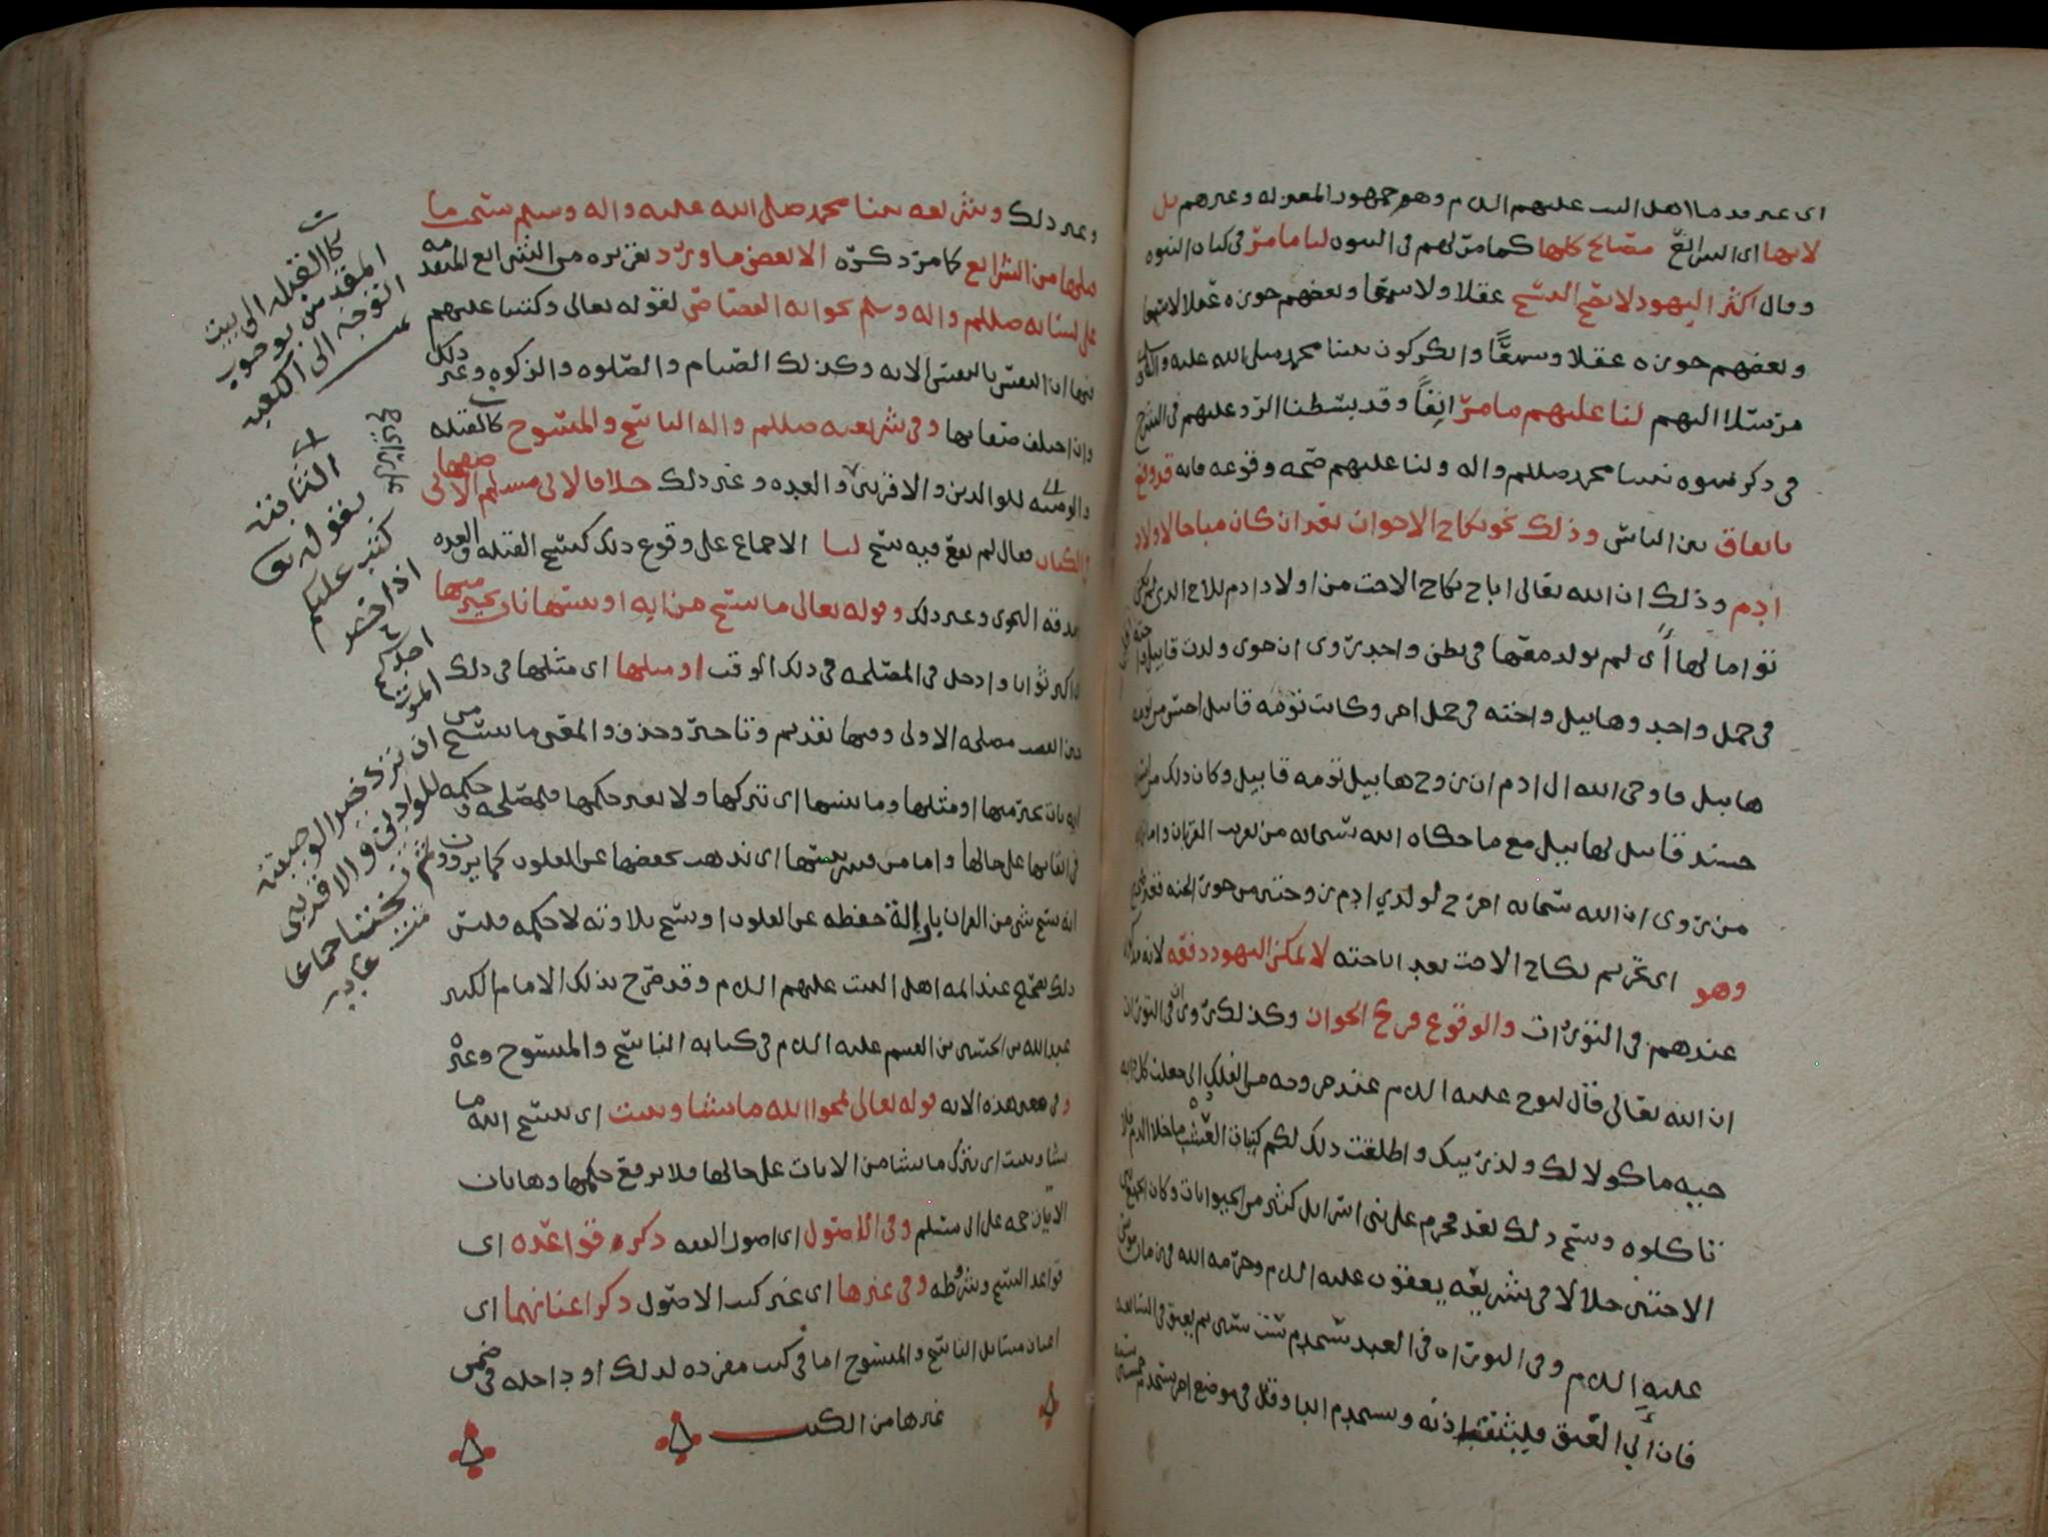 اى عير قدما اهل البيت عليهم السلام وهو جمهور المعتزله وغيرهم بل
لانها اى الشرائع مصالح كلها كما مر لهم فى النبوه لنا ما مر فى كتاب النبوه
وقال اكثر اليهود لا يصح النسخ عقلا ولا سمعا وبعضهم جوزه عقلا لا سمعا
وبعضهم جوزه عقلا وسمعًا وانكر كون نبينا محمد صلى الله عليه واله
مرسلا اليهم لنا عليهم ما مر انفًا وقد بسطنا الرد عليهم فى الشرح
فى ذكر نبوه نبينا محمد صللم واله ولنا عليهم صحه وقوعه فانه قد وقع
باتفاق بين الناس وذلك نحو نكاح الاخوان بعد ان كان مباحا لاولاد
ادم وذلك ان الله تعالى اباح نكاح الاخت من اولاد ادم للاخ الذى لم يكن
توامالها أى لم يولد معها فى بطن واحد روى ان حوى ولدت قابيل
فى حمل واحد وهابيل واخته فى حمل اخر وكانت تؤمه قابيل احسن من تؤمه
هابيل فاوحى الله الى ادم ان زوج هابيل تؤمه قابيل وكان ذلك
حسد قابيل لهابيل مع ما حكاه الله سبحانه من تقريب القربان واما
من روى ان الله سبحانه اخرج لولدي ادم زوجتين من حور الجنه فقد
وهو اى تحريم نكاح الاخت بعد اباحته لا يمكن اليهود دفعه لانه
عندهم فى التورات والوقوع فرع الجواز وكذلك روى ان فى التوراه
ان الله تعالى قال لنوح عليه السلام عند خروجه من الفلك انى جعلت كل دابه
حيه ماكولا لك ولذريتك واطلقت ذلك لكم كنبات العشب ما خلا الدم فلا
تاكلوه ونسخ ذلك فقد حرم على بنى اسرايل كثير من الحيوانات وكان الجمع بين
الاختين حلالا فى شريعه يعقوب عليه السلام وحرمه الله فى زمان موسى
عليه السلام وفى التوراه فى العبد يستخدم ست سنين ثم يعتق فى السابعه
فان أبى العتق فليثقب اذنه ويستخدم ابدا وقيل فى موضع اخر يستخدم خمسين سنه
وغير ذلك وشريعه نبينا محمد صلى الله عليه واله وسلم نسخ ما
قبلها من الشرايع كما مر ذكره الا بعض ما ورد تقريره من الشرائع المتقدمه
على لسانه صللم واله وسلم نحو ايه القصاص لقوله تعالى وكتبنا عليهم
فيها ان النفس بالنفس الايه وكذلك الصيام والصلوه والزكوه وغير ذلك
وان اختلف صفاتها وفى شريعته صللم واله الناسخ والمنسوخ كالقبله
والوصيه للوالدين والاقربين والعده وغير ذلك خلافا لابى مسلم الاصفهانى
فى الكتاب فقال لم يقع فيه نسخ لنا الاجماع على وقوع ذلك كنسخ القبله والعده
وصدقه النجوى وغير ذلك وقوله تعالى ما ننسخ من ايه او ننسها نات بخير منها
اى اكبر ثوابا وادخل فى المصلحه فى ذلك الوقت او مثلها اى مثلها فى ذلك
حين انقضت مصلحه الاولى وفيها تقديم وتاخير وحذف والمعنى ما ننسخ من
ايه نات بخير منها او مثلها وما ننسها اى نتركها ولا نغير حكمها فلمصلحه وحكمه
فى ابقائها على حالها واما من فسر ننسها اى نذهب بحفظها عن القلوب كما يروون
انه نسخ شى من القران بازالة حفظه عن القلوب او نسخ تلاوته لا حكمه فليس
ذلك بصحيح عند ائمه اهل البيت عليهم السلام وقد صرح بذلك الامام الكبير
عبد الله بن الحسين بن القسم عليه السلام فى كتابه الناسخ والمنسوخ وغيره
وفى معنى هذه الايه قوله تعالى يمحوا الله ما يشا ويثبت اى ينسخ الله ما
يشا ويثبت اى يترك ما يشا من الايات على حالها فلا يرفع حكمها وهاتان
الايتان حجه على ابى مسلم وفى الاصول اى اصول الفقه ذكره قواعده اى
قواعد النسخ وشروطه وفى غيرها اى غير كتب الاصول ذكر اعيانهما اى
اعيان مسايل الناسخ والمنسوخ اما فى كتب مفرده لذلك او داخله فى ضمن
غيرها من الكتب
كالقبله الى بيت
المقدس بوجوب
التوجه الى الكعبه
الثابته
بقوله تعالى
كتب عليكم
اذا حضر
احدكم
الموت
ان ترك خيرا الوصيته
للوالدين والاقربين
ثم نسختا جماعا